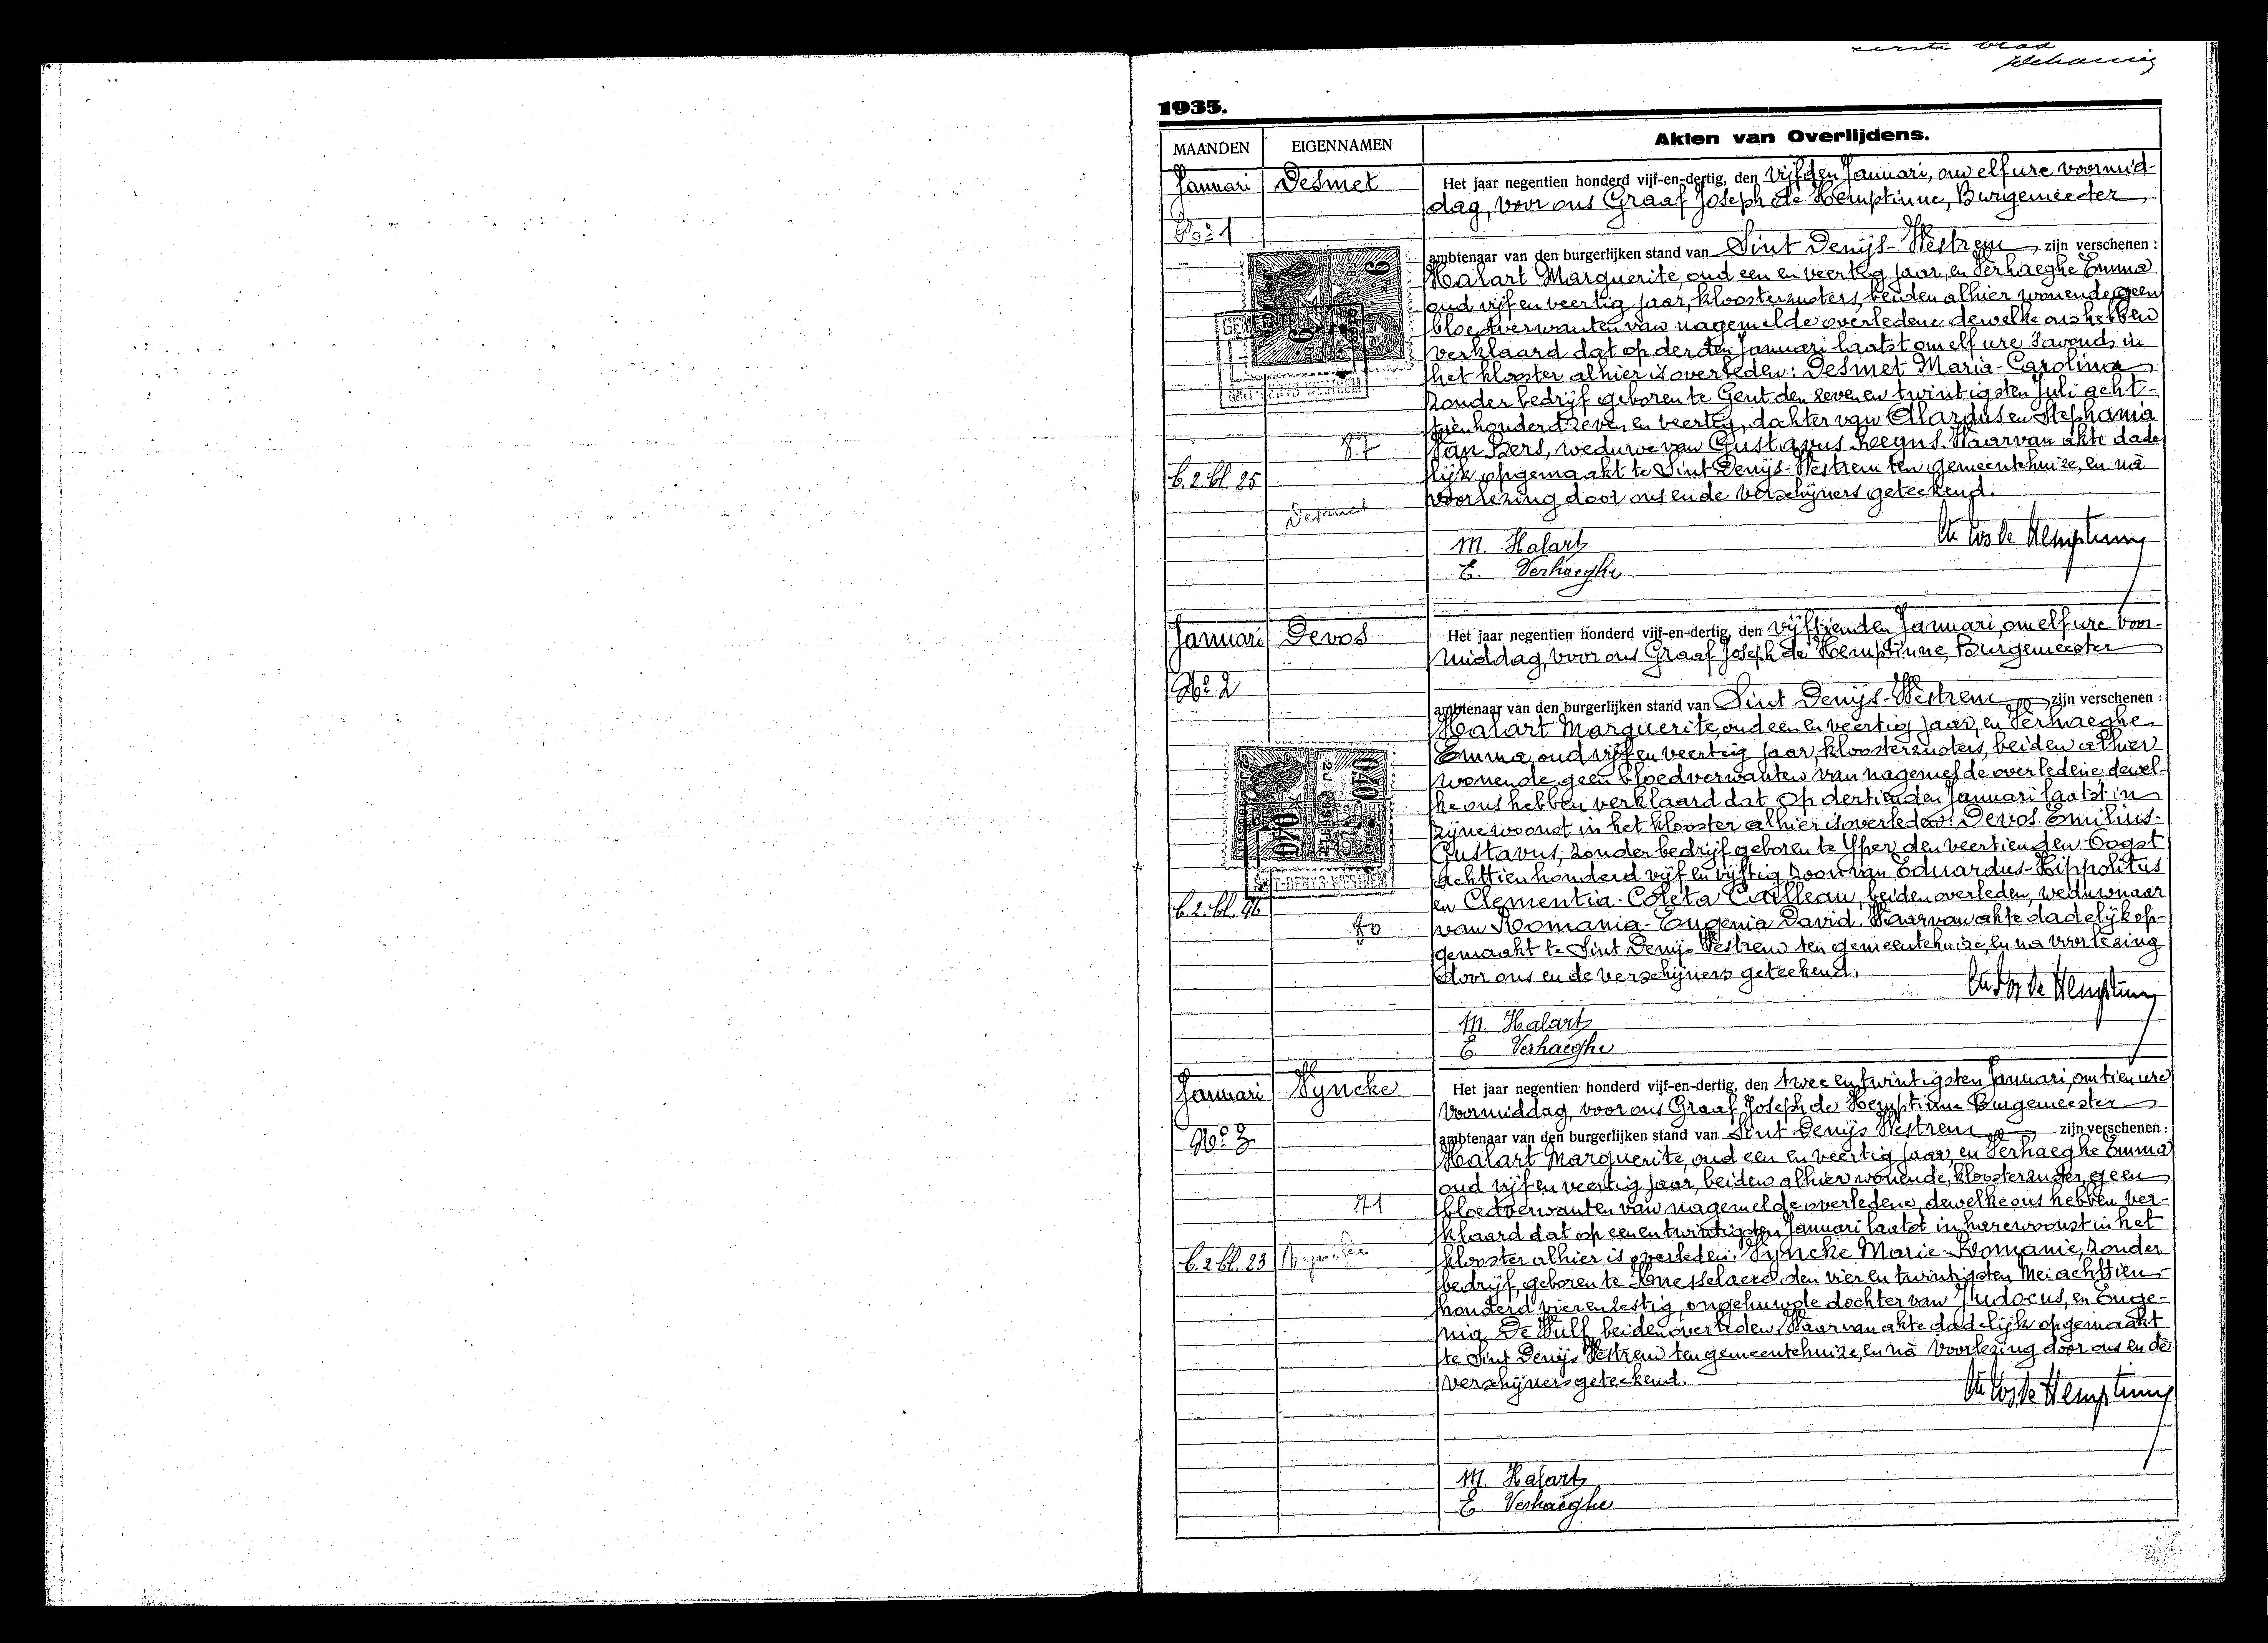 eerste blad
1935.
MAANDEN
EIGENNAMEN
Akten van Overlijdens.
Januari
Desmet
Het jaar negentien honderd vijf-en-dertig, den vijfden Januari, om elf ure voormid-
dag, voor ons Graaf Joseph de Hemptinne, Burgemeester
No. 1
ambtenaar van den burgerlijken stand van Sint Denijs-Westrem zijn verschenen :
Halart Marguerite, oud een en veertig jaar, en Verhaeghe Emma
oud vijf en veertig jaar, kloosterzusters, beiden alhier wonende, geen
bloedverwanten van nagemelde overledene dewelke ons hebben
verklaard dat op derden Januari laatst om elf ure 's avonds in
het klooster alhier is overleden: Desmet Maria-Carolina
zonder bedrijf geboren te Gent den zeven en twintigsten Juli acht-
tien honderd zeven en veertig, dochter van Alardus en Stephania
87
Van Bers, weduwe van Gustavus Reeyns. Waarvan akte dade
b. 2. bl. 25
lijk opgemaakt te Sint Denijs-Westrem ten gemeentehuize, en nà
voorlezing door ons en de verschijners geteekend.
Desmet
Cte Jos de Hemptinne
M. Halart
E. Verhaeghe
Januari
Devos
Het jaar negentien honderd vijf-en-dertig, den vijftienden Januari, om elf ure voor-
middag, voor ons Graaf Joseph de Hemptinne, Burgemeester
No. 2
ambtenaar van den burgerlijken stand van Sint Denijs-Westrem zijn verschenen :
Halart Marguerite, oud een en veertig jaar, en Verhaeghe
Emma, oud vijf en veertig jaar, kloosterzusters, beiden alhier
wonende, geen bloedverwanten van nagemelde overledene, dewel-
ke ons hebben verklaard dat op dertienden Januari laatst in
zijne woonst in het klooster alhier is overleden: Devos Emilius-
Gustavus, zonder bedrijf geboren te Yper, den veertienden Oogst
achttien honderd vijf en vijftig zoon van Eduardus-Hippolitus
en Clementia-Coleta Cailleau, beiden overleden, weduwnaar
b. 2. bl. 46
80
van Romania-Eugenia David. Waarvan akte dadelijk op-
gemaakt te Sint Denijs Westrem ten gemeentehuize, en na voorlezing
door ons en de verschijners geteekend.
Cte Jos de Hemptinne
M. Halart
E. Verhaeghe
Januari
Vyncke
Het jaar negentien honderd vijf-en-dertig, den twee en twintigsten Januari, om tien ure
voormiddag, voor ons Graaf Joseph de Hemptinne Burgemeester
No. 3
ambtenaar van den burgerlijken stand van Sint Denijs Westrem zijn verschenen :
Halart Marguerite, oud een en veertig jaar, en Verhaeghe Emma
oud vijf en veertig jaar, beiden alhier wonende, kloosterzuster, geen
71
bloedverwanten van nagemelde overledene, dewelke ons hebben ver-
klaard dat op een en twintigsten Januari laatst in hare woonst in het
b. 2 bl. 23
klooster alhier is overleden: Vyncke Marie-Romanie, zonder
bedrijf, geboren te Knesselaere den vier en twintigsten Mei achttien-
honderd vier en zestig, ongehuwde dochter van Judocus, en Euge-
nia De Wulf, beiden overleden. Waarvan akte dadelijk opgemaakt
te Sint Denijs Westrem ten gemeentehuize, en nà voorlezing door ons en de
verschijners geteekend.
Cte Jos de Hemptinne
M. Halart
E. Verhaeghe